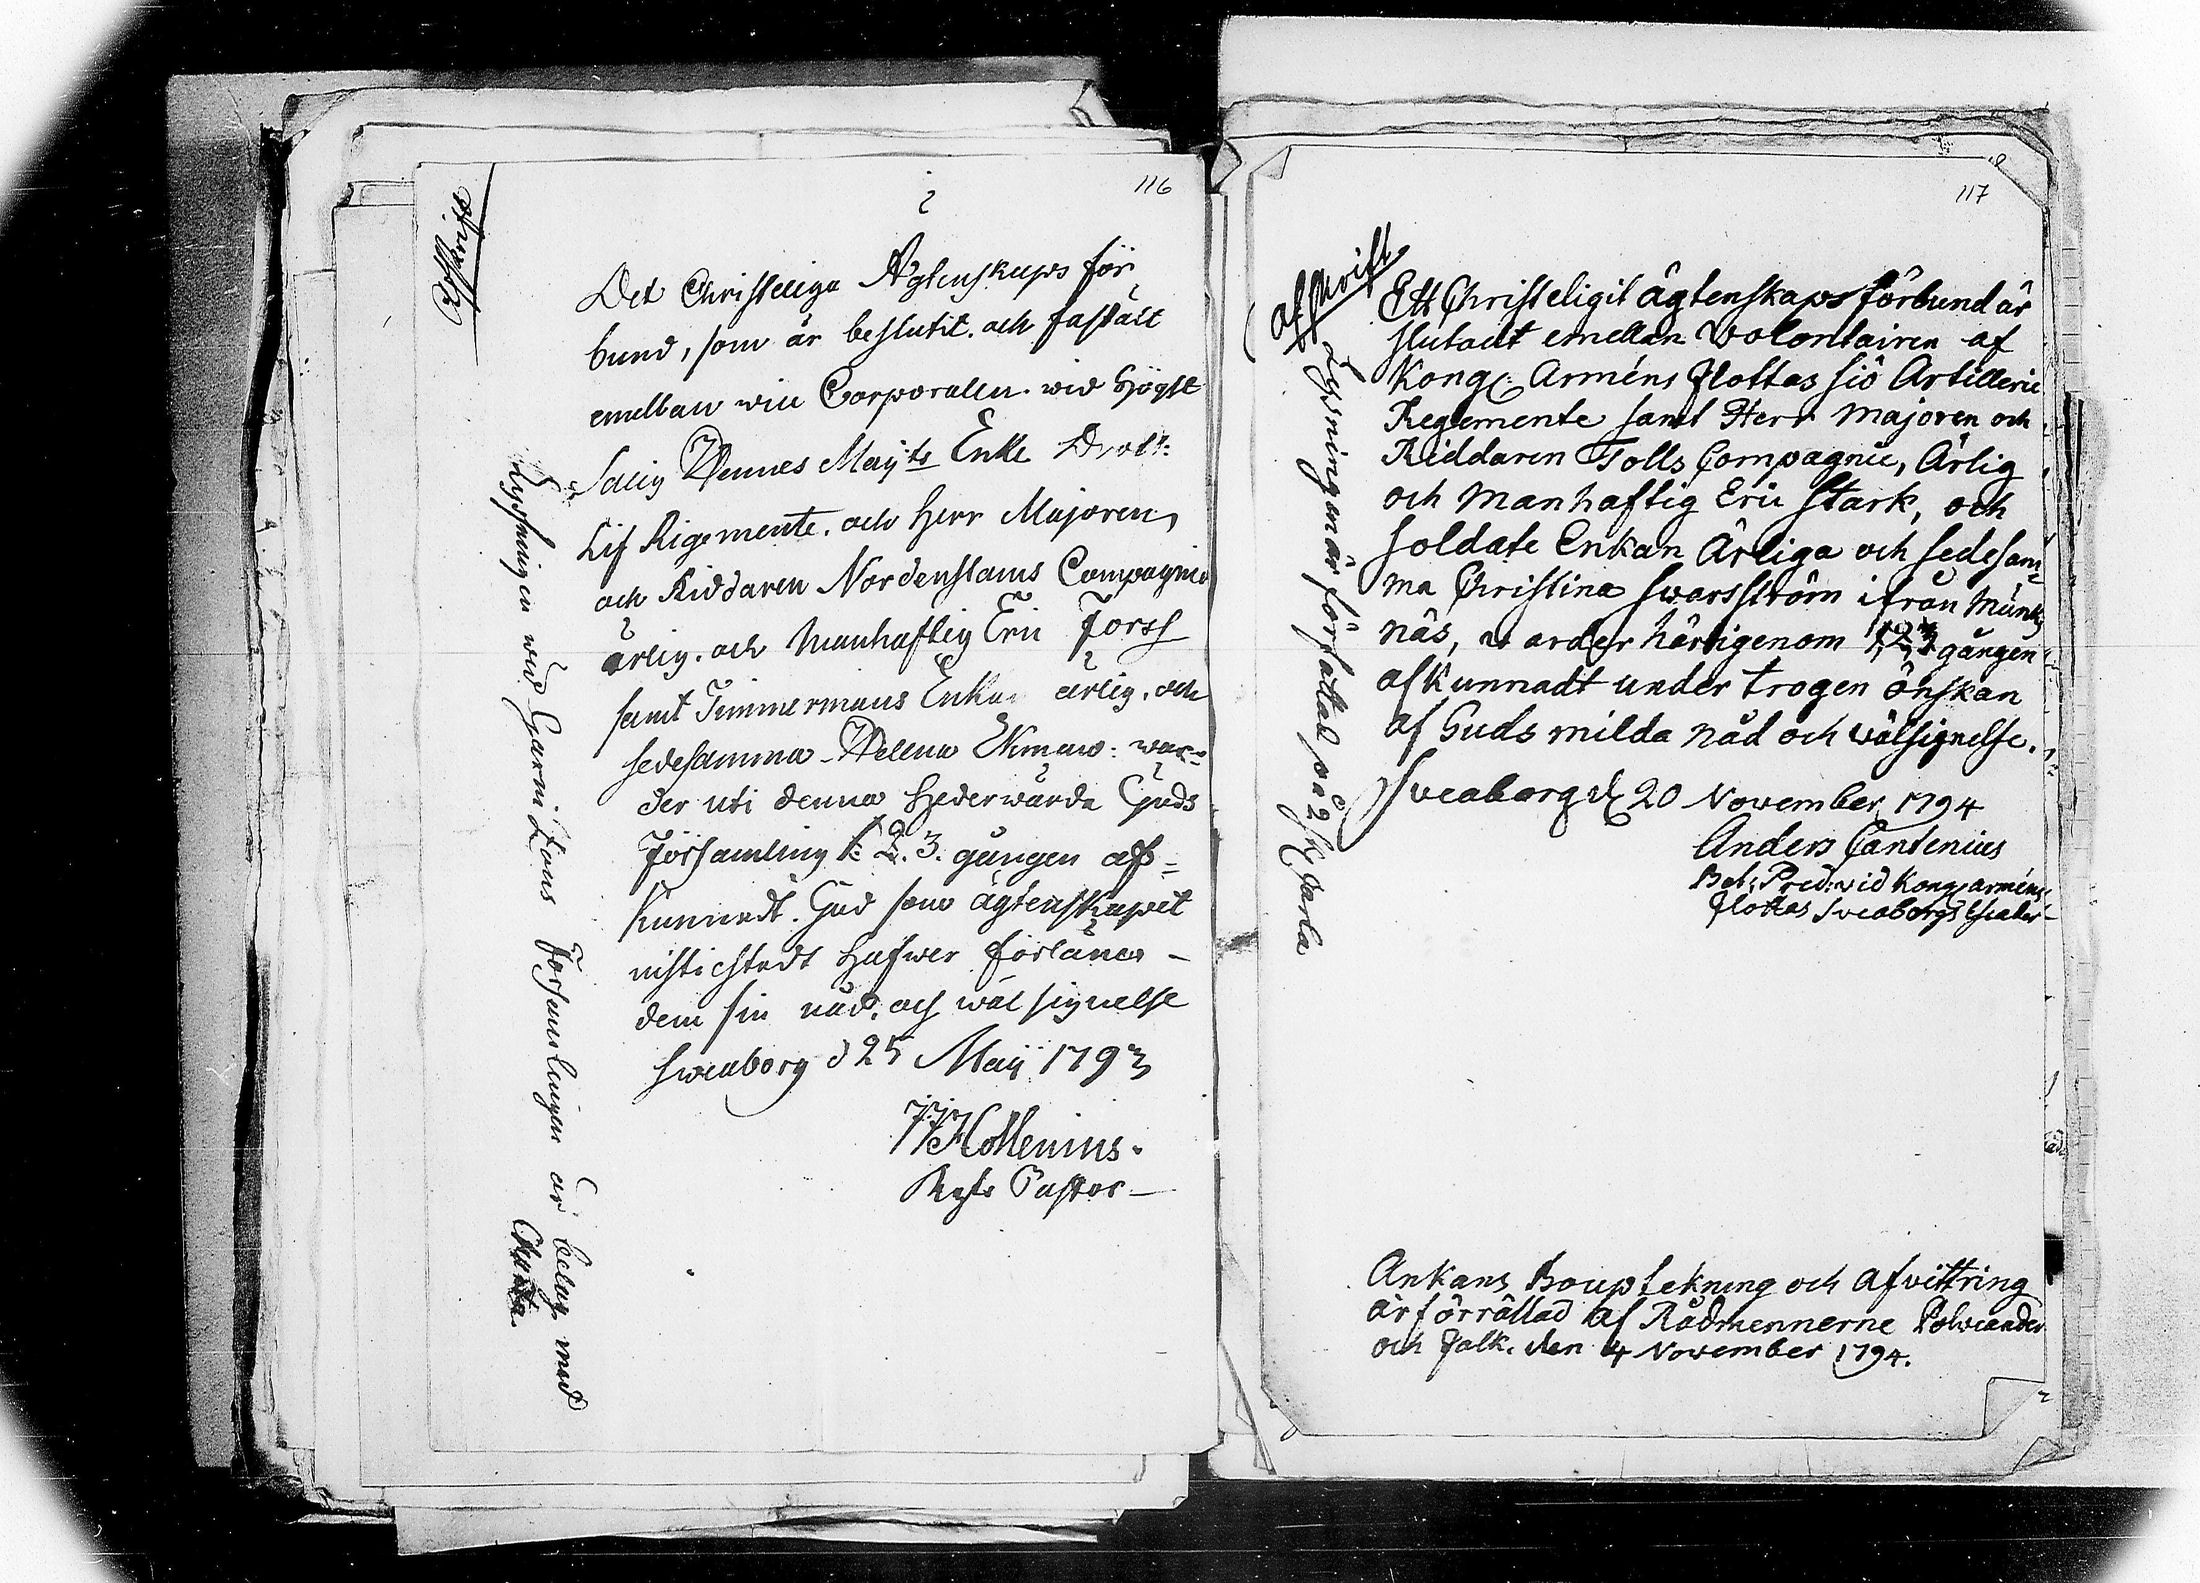 116
Afskrift
Det Christeliga Ägtenskaps för
bund, som är beslutit. och fastält
emellan wice Corporalen wid Högst
Salig Hennes Maij:ts Enke Drott:
Lif Regemente. och Herr Majoren,
och Riddaren Nordenstams Compagnie
ärlig. och Manhaftig Eric Forss
samt Timmermans Enkan ärlig. och
sedesamma Helena Ekman: war=
der uti denna Hedervärda Guds
Församling 1: 2. 3. gången af=
kunnadt. Gud som ägtenskapet
instichtadt hafwer förläner
dem sin nåd. och wälsignelse
Sweaborg d 25 Maij 1793
Hollenius.
Regts Pastor
Lysningen wid Garnizons Församlingen är belagd med
Charta
117
Afskrift
Ett Christeligit ägtenskaps förbund är
slutadt emellan Volontairen af
Kongl: Arméns flottas siö Artillerie
Regemente samt Herr Majoren och
Riddaren Tolls Compagnie, Ärlig
och Manhaftig Eric Stark, och
Soldate Enkan Ärliga och sedesam=
ma Christina Swarsström ifrån Munk
näs, warder härigenom 1, 2, 3 gången
afkunnadt under trogen önskan
af Guds milda nåd och wälsignelse.
Sveaborg d 20 November 1794
Anders Cantenius
Bat: Pred: wid Kongl arméns
flottas Sveaborgs Escader
Lysningen är författad på 2 sk Charta
Ankans Bouptekning och Afvittring
är förrättad af Rådmennerne Polviander
och Falk. den 4 November 1794.